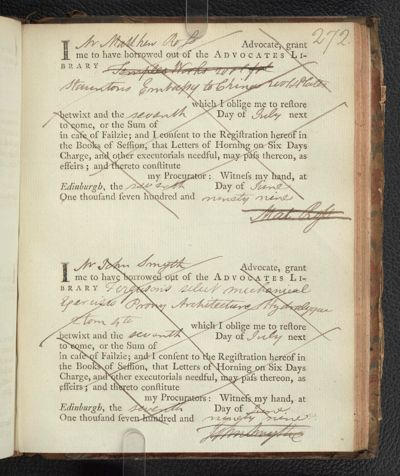 272
I Mr Matthew Ross Advocate, grant
me to have borrowed out of the ADVOCATES LI-
BRARY Temples Works
Stauntons Embassy to China &
which I oblige me to reſtore
betwixt and the seventh Day of July next
to come, or the Sum of
in caſe of Failzie; and I conſent to the Regiſtration hereof in
the Books of Seſſion, that Letters of Horning on Six Days
Charge, and other executorials needful, may paſs thereon, as
effeirs; and thereto conſtitute
my Procurator: Witneſs my hand, at
Edinburgh, the seventh Day of June
One thouſand ſeven hundred and ninety nine
Mat. Ross
I Mr John Smyth Advocate, grant
me to have borrowed out of the ADVOCATES LI-
BRARY Fergusons select mechanical
Exercises Prony Architecture Hydraulique
tom 4to
which I oblige me to reſtore
betwixt and the seventh Day of July next
to come, or the Sum of
in caſe of Failzie; and I conſent to the Regiſtration hereof in
the Books of Seſſion, that Letters of Horning on Six Days
Charge, and other executorials needful, may paſs thereon, as
effeirs; and thereto conſtitute
my Procurator: Witneſs my hand, at
Edinburgh, the seventh Day of June
One thouſand ſeven hundred and ninety nine
John Smyth